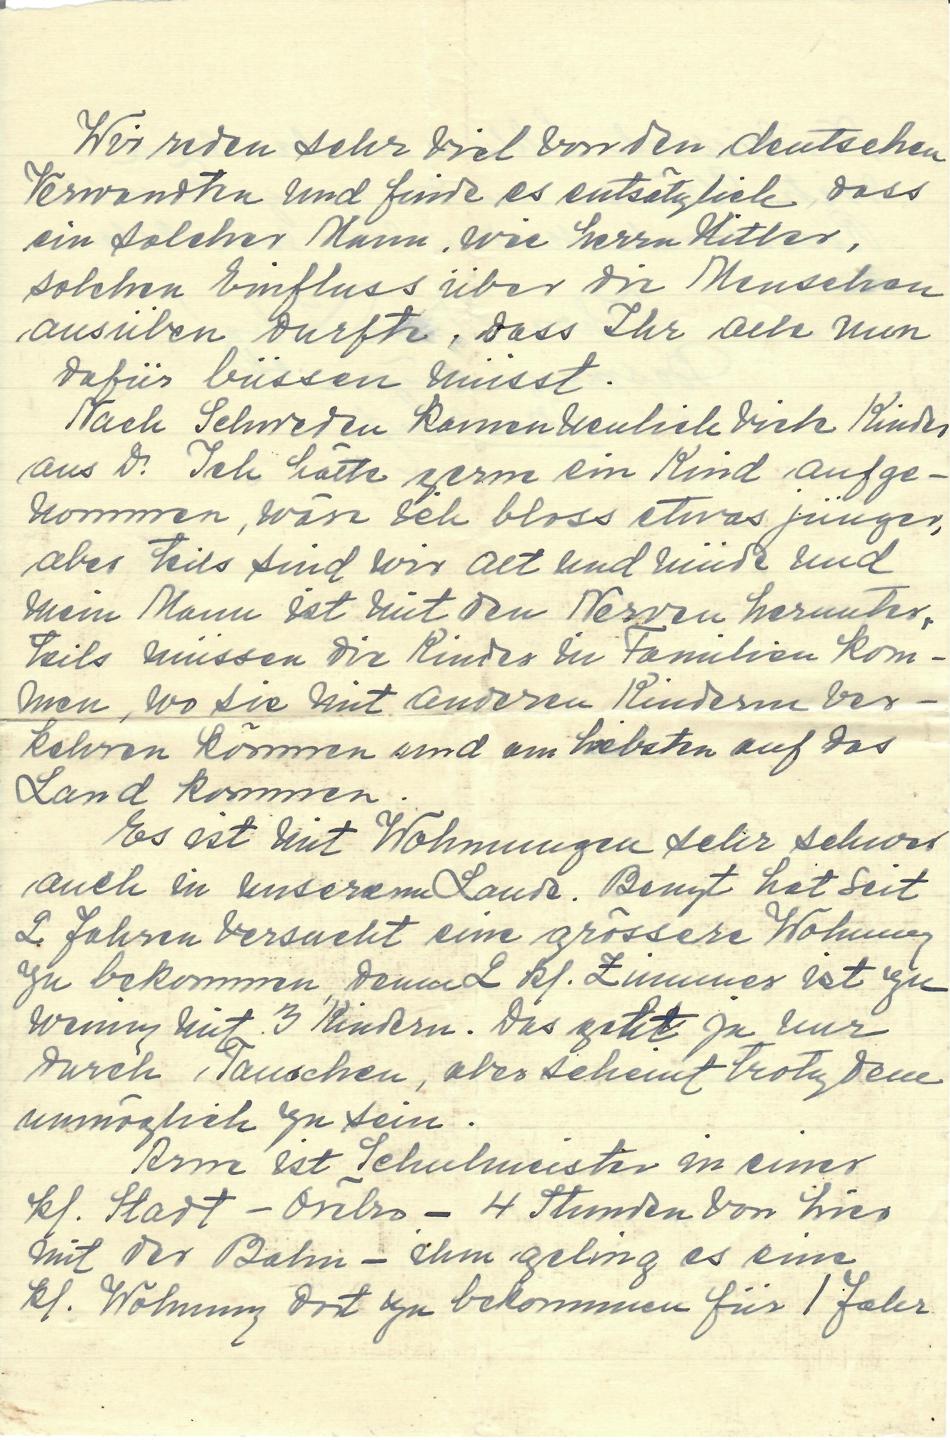 Wir reden sehr viel von den deutschen
Verwandten und finde es entsätzlich dass
ein solcher Mann, wie herrn Hitler,
solchen Einfluss über die Menschen
ausüben durfte, dass Ihr alle nun
dafür büssen müsst.
Nach Schweden kamen neulich viele Kinder
aus D. Ich hätte gerne ein Kind aufge-
nommen, wäre ich bloss etwas jünger,
aber teils sind wir alt und müde und
mein Mann ist mit den Nerven herunter,
teils müssen die Kinder in Familien kom-
men, wo sie mit anderen Kindern ver-
kehren können und am liebsten auf das
Land kommen.
Es ist mit Wohnungen sehr schwer
auch in unserem Lande. Bengt hat seit
2 Jahren versucht eine grössere Wohnung
zu bekommen, denn 2 kl. Zimmer ist zu
wenig mit 3 Kindern. Das geht ja nur
durch Tauschen, aber scheint trotzdem
unmöglich zu sein.
Arne ist Schulmeister in einer
kl. Stadt - Örebro - 4 Stunden von hier
mit der Bahn - ihm geling es eine
kl. Wohnung dort zu bekommen für 1 Jahr